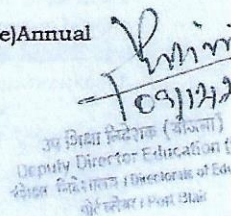 e)Annual
उप शिक्षा निदेशक (योजना)
Deputy Director Education (
शिक्षा निदेशालय / Directorate of Edu
पोर्ट ब्लेयर / Port Blair